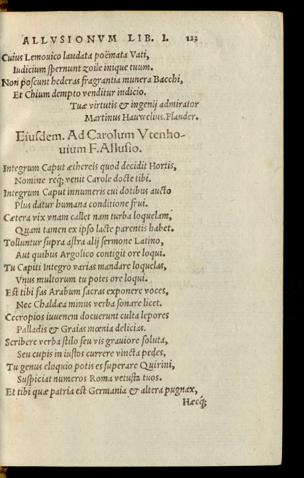 ALLVSIONVM LIB. I. 123
Cuius Lemouico laudata poëmata Vati,
Iudicium spernunt zoile inique tuum.
Non poscunt hederas fragrantia munera Bacchi,
Et Chium dempto venditur indicio.
Tuæ virtutis & ingenij admirator
Martinus Hauweluis. Flander.
Eiusdem. Ad Carolum Vtenho-
uium F. Allusio.
Integrum Caput æthereis quod decidit Hortis,
Nomine req; venit Carole docte tibi.
Integrum Caput innumeris cui dotibus aucto
Plus datur humana conditione frui.
Cætera vix vnam callet nam turba loquelam,
Quam tamen ex ipso lacte parentis habet.
Tolluntur supra astra alij sermone Latino,
Aut quibus Argolico contigit ore loqui.
Tu Capiti Integro varias mandare loquelas,
Vnus multorum tu potes ore loqui.
Est tibi fas Arabum sacras exponere voces,
Nec Chaldæa minus verba sonare licet.
Cecropios iuuenem docuerunt culta lepores
Palladis & Graias mœnia delicias.
Scribere verba stilo seu vis grauiore soluta,
Seu cupis in iustos currere vincta pedes,
Tu genus eloquio potis es superare Quirini,
Suspiciat numeros Roma vetusta tuos.
Et tibi quæ patria est Germania & altera pugnax,
Hæcq́;